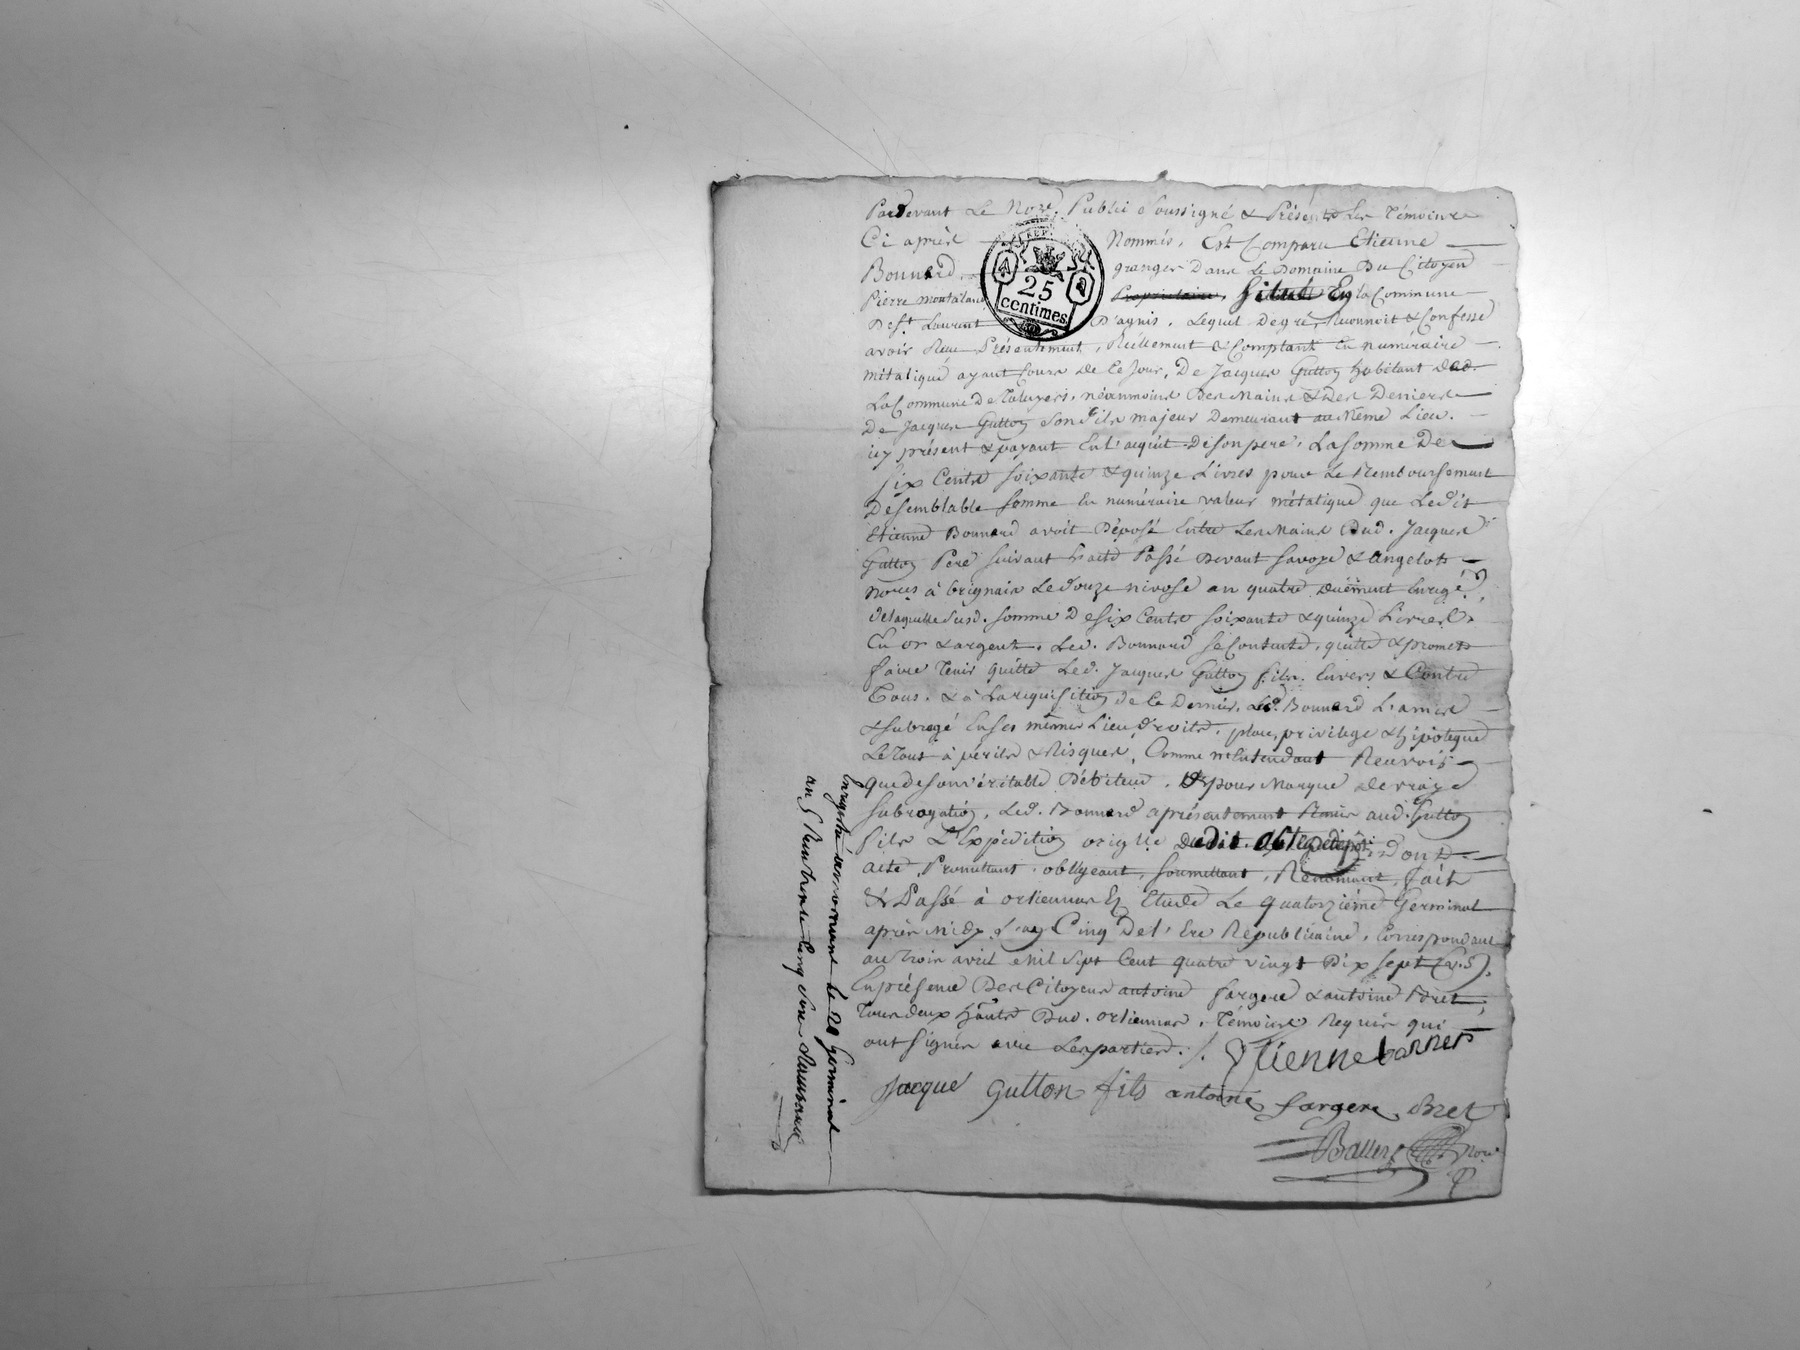 Pardevant Le Nore. Public Soussigné & Présents Les Témoins
Ci après Nommés, Est Comparu Etienne
Bonnard granger Dans Le Domaine Du Citoyen
Pierre montaland Propriétaire, Situé En la Commune
De st. Laurent D'agnis, Lequel De gré, Reconnoit & Confesse
avoir Reçu Présentement, Réellement & Comptant En numéraire
mitalique ayant Cours De Ce Jour, De Jacques Gutton habitant de
La Commune De Taluyers, néanmoins Des Mains & Des Deniers
De Jacques Gutton Son fils majeur Demeurant au Même Lieu.
icy présent & payant En L'acquit De Son pere, La Somme De
Six Cents Soixante & quinze Livres pour Le Remboursement
De Semblable Somme En numéraire valeur métalique que Ledit
Etienne Bonnard avoit Déposé Entre Les Mains Dud. Jacques
Gutton Pere Suivant L'acte Passé Devant Savoye & Angelot
Nores à brignais Le Douze nivose an quatre Duëment Enrégé.
De laquelle Susd. Somme De Six Cents Soixante & quinze Livres
En or & argent, Led. Bonnard Se Contente, quitte & promets
faire Tenir quitte Led. Jacques Gutton fils Envers & Contre
Tous. & à La requisition de Ce Dernier, Led. Bonnard L'a mis
& Subrogé En Ses mêmes Lieu, Droits, place, privilege & hipoteque
Le Tout à périls & Risques, Comme n'Entendant Recevoir
que De Son véritable Débiteur, Et pour Marque De vraye
Subrogation, Led. Bonnard a présentement Remis aud. Gutton
fils L'Expédition origlle dudit acte de dépôt Dont
acte, Promettant, obligeant, Soumettant, Renonçant, fait
& Passé à orlienas En Etude Le quatorzième Germinal
après Midy L'an Cinq De L'Ere Républicaine, Correspondant
au Trois avril Mil Sept Cent quatre vingt Dix Sept (v.s),
En présence Des Citoyens antoine fargere & antoine Bret
Tous deux hants Dud. orlienas, Témoins Requis qui
ont Signés avec Les parties. /. Etienne bonner
Jacque Gutton fils antoine fargere Bret
Nore
Enregistré à mornant le 28 Germinal
an 5 Reçu trente Cinq Sous
REP.
25
centimes